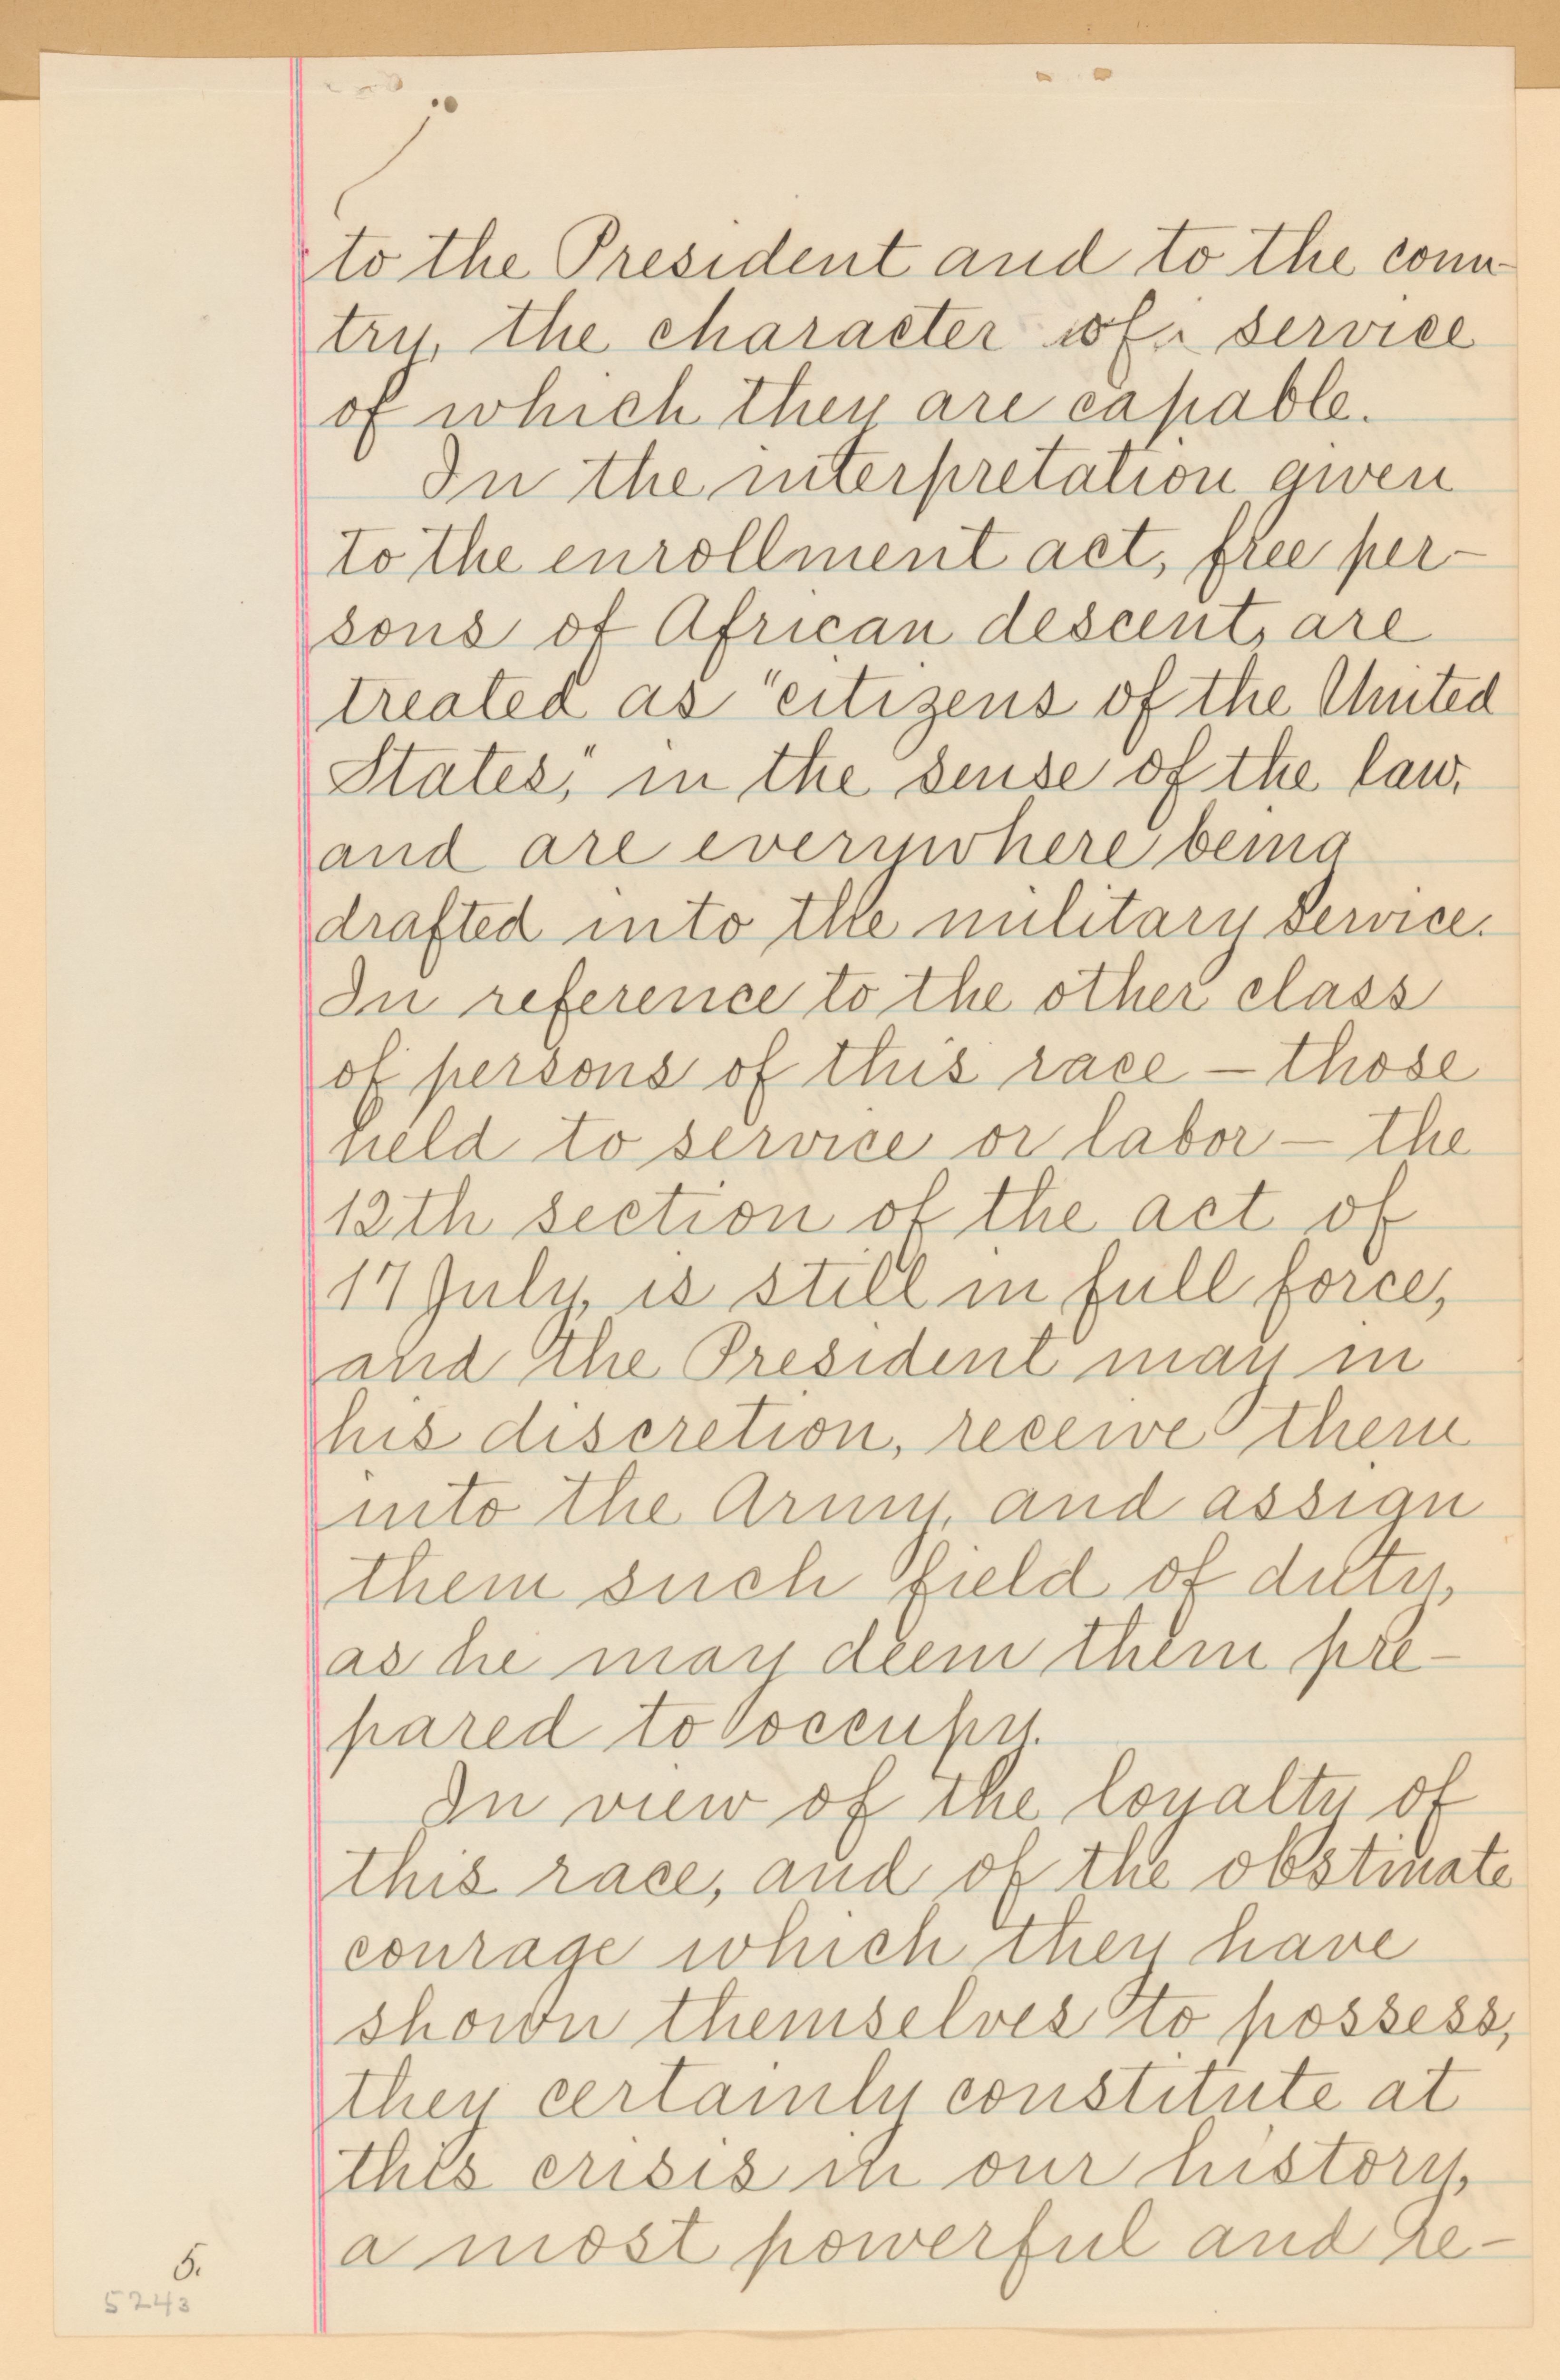 to the President and to the coun-
try, the character of service
of which they are capable.
In the interpretation given
to the enrollment act, free per-
sons of African descent, are
treated as "citizens of the United
States," in the sense of the law,
and are everywhere being
drafted into the military service.
In reference to the other class
of persons of this race – those
held to service or labor – the
12th section of the act of
17 July, is still in full force,
and the President may in
his discretion, receive them
into the Army, and assign
them such field of duty,
as he may deem them pre-
pared to occupy.
In view of the loyalty of
this race, and of the obstinate
courage which they have
shown themselves to possess,
they certainly constitute at
this crisis in our history,
a most powerful and re-
5.
5243